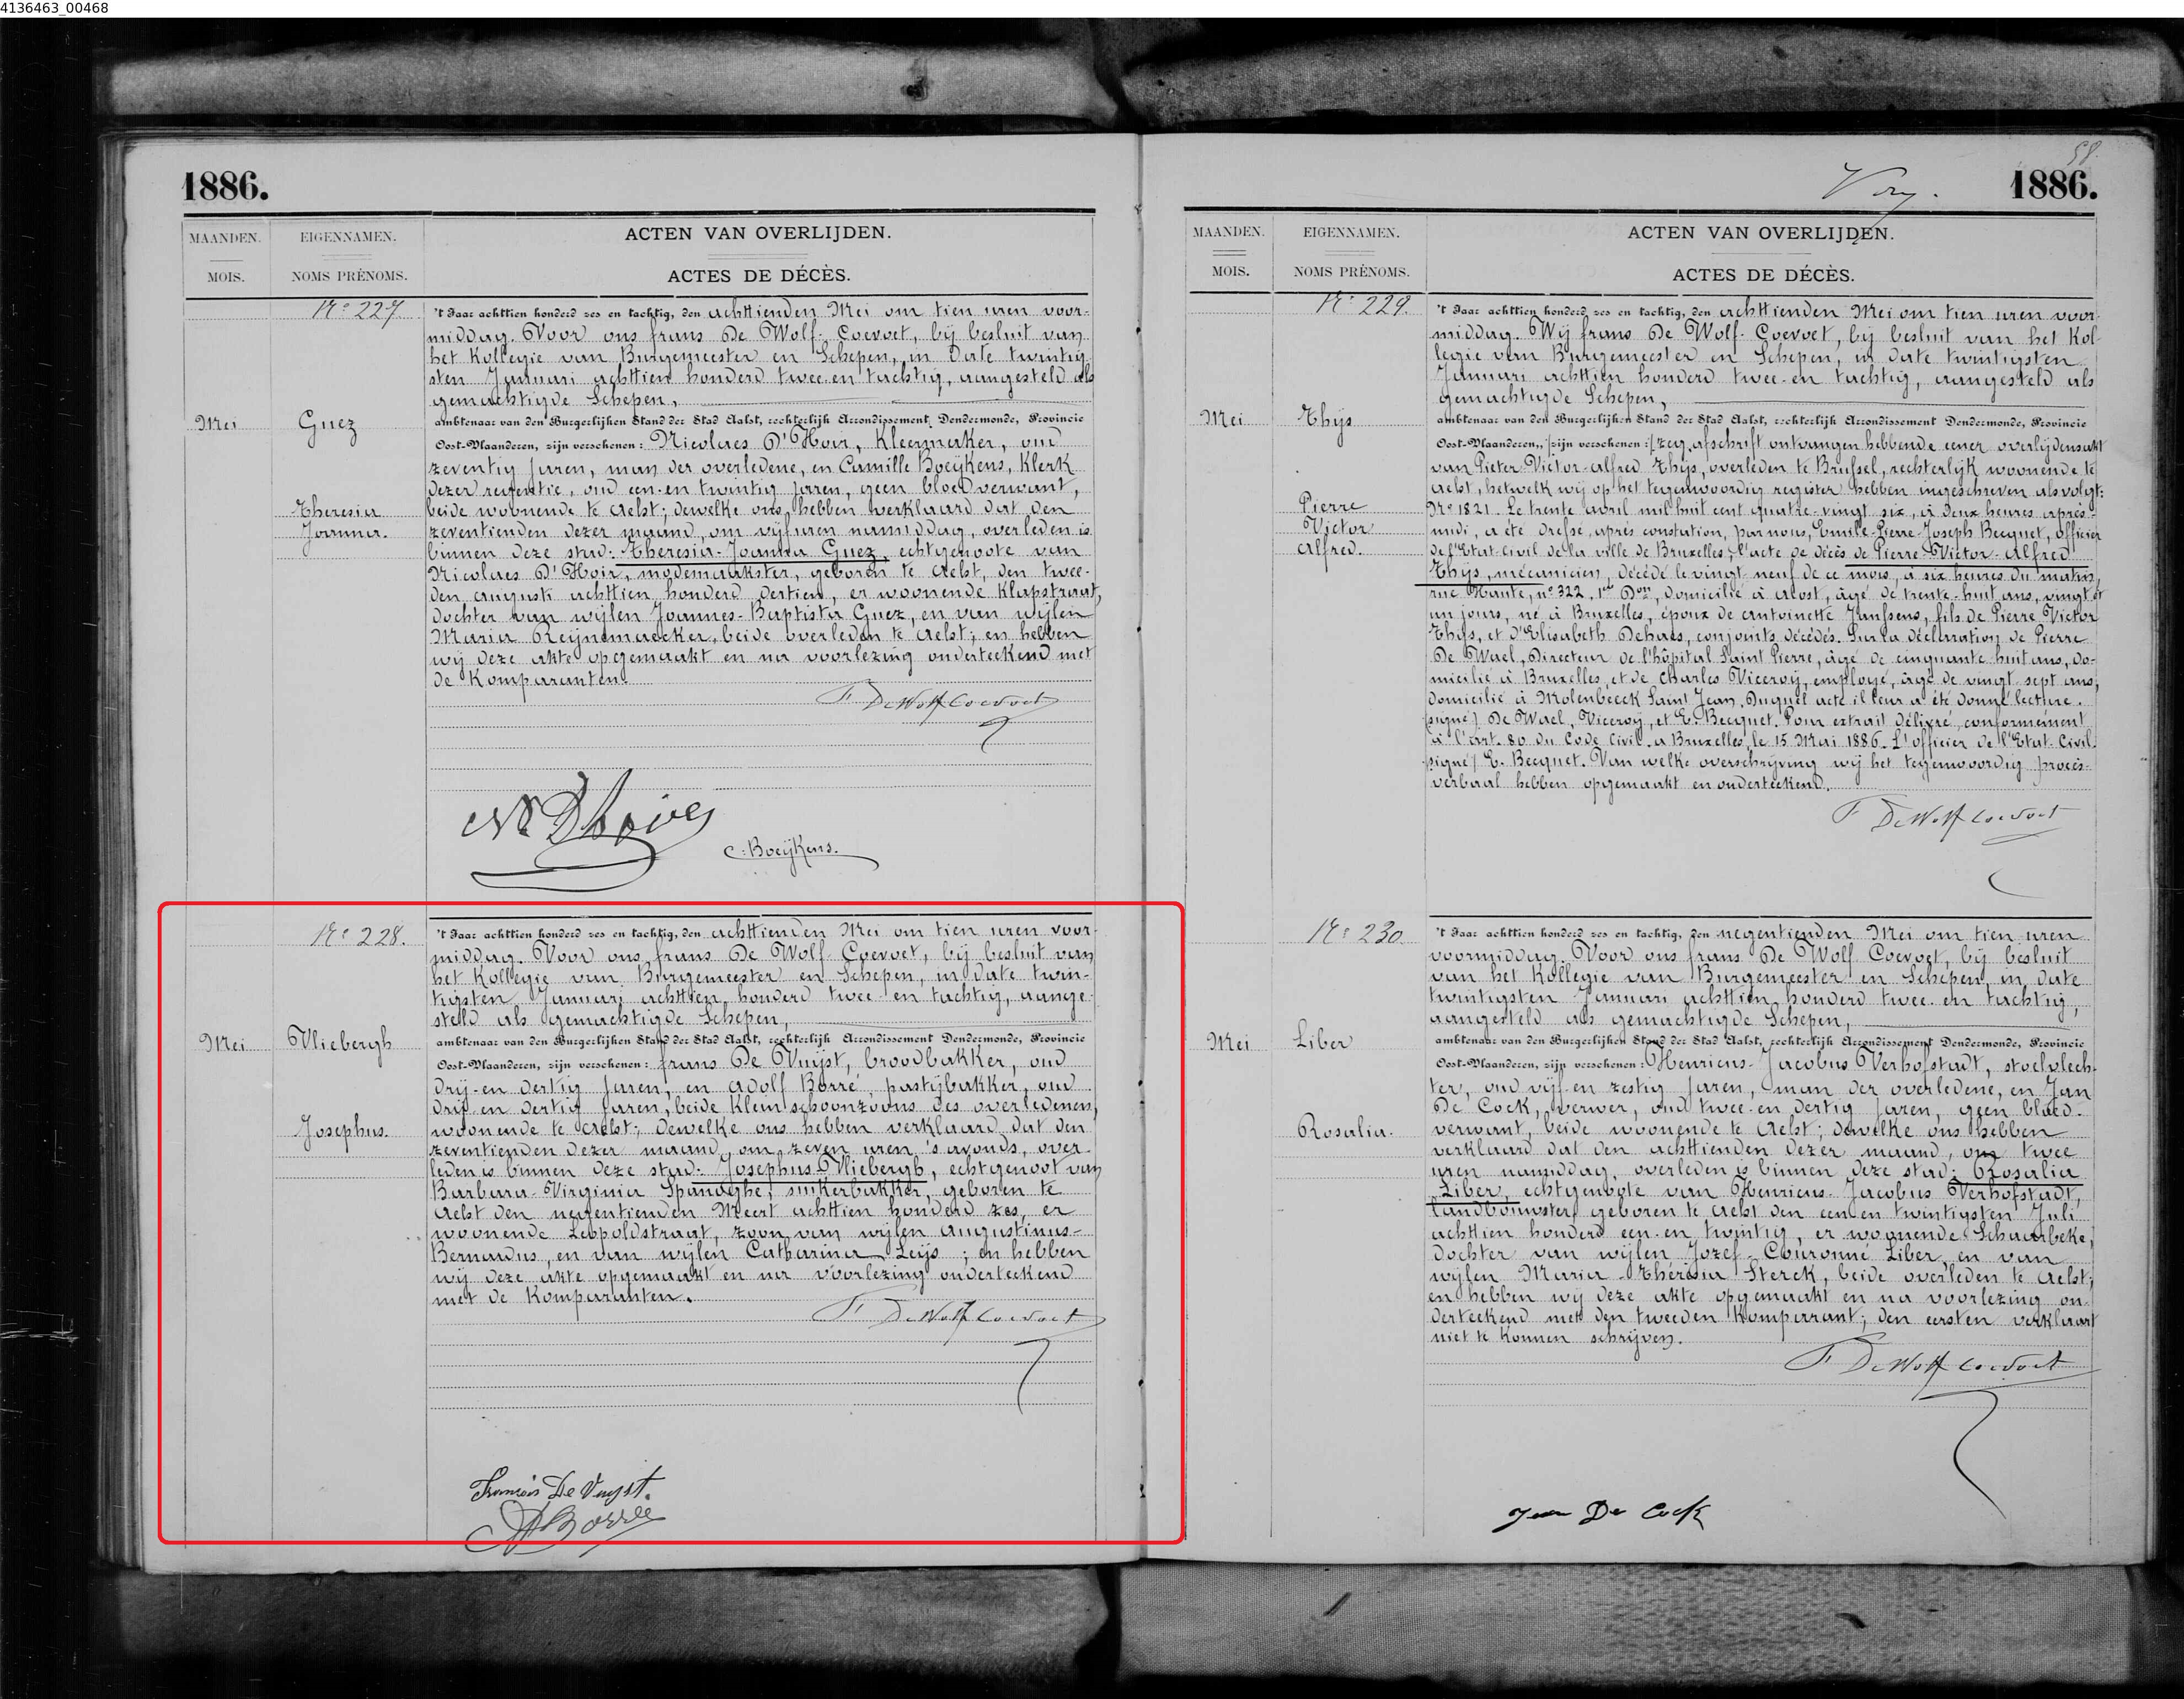 4136463_00468
1886.
MAANDEN.
MOIS.
EIGENNAMEN.
NOMS PRÉNOMS.
ACTEN VAN OVERLIJDEN.
ACTES DE DÉCÈS.
Nº 227
Mei
Guez
Theresia
Joanna.
't Jaar achttien honderd zes en tachtig, den achttienden Mei om tien uren voor-
middag. Voor ons frans De Wolf-Coevoet, bij besluit van
het Kollegie van Burgemeester en Schepen, in date twintig-
sten Januari achttien honderd twee en tachtig, aangesteld als
gemachtigde Schepen,
ambtenaar van den Burgerlijken Stand der Stad Aalst, rechterlijk Arrondissement Dendermonde, Provincie
Oost-Vlaanderen, zijn verschenen: Nicolaes D'Hoir, Kleermaker, oud
zeventig jaren, man der overledene, en Camille Boeÿkens, klerk
dezer regentie, oud een-en twintig jaren, geen bloedverwant,
beide woonende te Aelst; dewelke ons hebben verklaard dat den
zeventienden dezer maand, om vijf uren namiddag, overleden is
binnen deze stad: Theresia-Joanna Guez, echtgenoote van
Nicolaes D'Hoir, modemaakster, geboren te Aelst, den twee-
den augusti achttien honderd dertien, er woonende Klapstraat,
dochter van wijlen Joannes-Baptista Guez, en van wijlen
Maria Reijnemaecker, beide overleden te Aelst; en hebben
wij deze akte opgemaakt en na voorlezing onderteekend met
de Komparanten.
F. De Wolf Coevoet
C. Boeÿkens.
Nº 228.
Mei
Vliebergh
Josephus.
't Jaar achttien honderd zes en tachtig, den achttienden Mei om tien uren voor-
middag. Voor ons frans De Wolf-Coevoet, bij besluit van
het Kollegie van Burgemeester en Schepen, in date twin-
tigsten Januari achttien honderd twee-en tachtig, aange-
steld als gemachtigde Schepen,
ambtenaar van den Burgerlijken Stand der Stad Aalst, rechterlijk Arrondissement Dendermonde, Provincie
Oost-Vlaanderen, zijn verschenen: frans De Vuijst, broodbakker, oud
drij-en dertig jaren, en Adolf Borré, pastijbakker, oud
drij-en dertig jaren, beide kleinschoonzoons des overledenen,
woonende te Aelst; dewelke ons hebben verklaard dat den
zeventienden dezer maand, om zeven uren 's avonds, over-
leden is binnen deze stad: Josephus Vliebergh, echtgenoot van
Barbara-Virginia Spanoghe, suikerbakker, geboren te
Aelst den negentienden Meert achttien honderd zes, er
woonende Leopoldstraat, zoon van wijlen Augustinus-
Bernardus, en van wijlen Catharina Leijs; en hebben
wij deze akte opgemaakt en na voorlezing onderteekend
met de Komparanten.
F. De Wolf Coevoet
François De Vuyst.
A Borré
58.
1886.
MAANDEN.
MOIS.
EIGENNAMEN.
NOMS PRÉNOMS.
ACTEN VAN OVERLIJDEN.
ACTES DE DÉCÈS.
Nº 229.
Mei
Thijs
Pierre
Victor
Alfred.
't Jaar achttien honderd zes en tachtig, den achttienden Mei om tien uren voor-
middag. Wij frans De Wolf-Coevoet, bij besluit van het Kol-
legie van Burgemeester en Schepen, in date twintigsten
Januari achttien honderd twee-en tachtig, aangesteld als
gemachtigde Schepen,
ambtenaar van den Burgerlijken Stand der Stad Aalst, rechterlijk Arrondissement Dendermonde, Provincie
Oost-Vlaanderen, /zijn verschenen:/ zeg, afschrift ontvangen hebbende eener overlijdensakt
van Pieter-Victor-Alfred Thijs, overleden te Brussel, rechterlijk woonende te
Aelst, hetwelk wij op het tegenwoordig register hebben ingeschreven als volgt:
Nº 1821. Le trente avril mil huit cent quatre-vingt six, à deux heures après-
midi, a été dressé, après constation, par nous, Emille-Pierre-Joseph Becquet, officier
de l'Etat-Civil de la ville de Bruxelles, l'acte de décès de Pierre-Victor-Alfred
Thijs, mécanicien, décédé le vingt-neuf de ce mois, à six heures du matin,
rue Haute, nº 322, 1re Don, domicilié à Alost, âgé de trente-huit ans, vingt et
un jours, né à Bruxelles, époux de Antoinette Janssens, fils de Pierre Victor
Thijs, et d'Elisabeth Dehaes, conjoints décédés. Sur la déclaration de Pierre
De Wael, Directeur de l'hôpital Saint Pierre, âgé de cinquante-huit ans, do-
micilié à Bruxelles, et de Charles Viceroij, employé, âgé de vingt-sept ans,
domicilié à Molenbeeck Saint Jean. Duquel acte il leur a été donné lecture.
(signé) De Wael, Viceroij, et E. Becquet. Pour extrait délivré, conformément
à l'art. 80 du Code Civil. à Bruxelles, le 15 Mai 1886. L'officier de l'Etat-Civil.
(signé) E. Becquet. Van welke overschrijving wij het tegenwoordig proces-
verbaal hebben opgemaakt en onderteekend.
F. De Wolf Coevoet
Nº 230.
Mei
Liber
Rosalia.
't Jaar achttien honderd zes en tachtig, den negentienden Mei om tien uren
voormiddag. Voor ons frans De Wolf Coevoet, bij besluit
van het Kollegie van Burgemeester en Schepen, in date
twintigsten Januari achttien honderd twee en tachtig,
aangesteld als gemachtigde Schepen,
ambtenaar van den Burgerlijken Stand der Stad Aalst, rechterlijk Arrondissement Dendermonde, Provincie
Oost-Vlaanderen, zijn verschenen: Henricus-Jacobus Verhofstadt, stoelvlech-
ter, oud vijf-en zestig jaren, man der overledene, en Jan
De Cock, verwer, oud twee-en dertig jaren, geen bloed-
verwant, beide woonende te Aelst; dewelke ons hebben
verklaard dat den achttienden dezer maand, om twee
uren namiddag, overleden is binnen deze stad: Rosalia
Liber, echtgenoote van Henricus-Jacobus Verhofstadt,
landbouwster, geboren te Aelst den een-en twintigsten Juli
achttien honderd een-en twintig, er woonende Schaarbeke,
dochter van wijlen Jozef-Couronné Liber, en van
wijlen Maria-Thérésia Sterck, beide overleden te Aelst;
en hebben wij deze akte opgemaakt en na voorlezing on-
derteekend met den tweeden Komparant; den eersten verklaart
niet te konnen schrijven.
F. De Wolf Coevoet
Jean De Cock